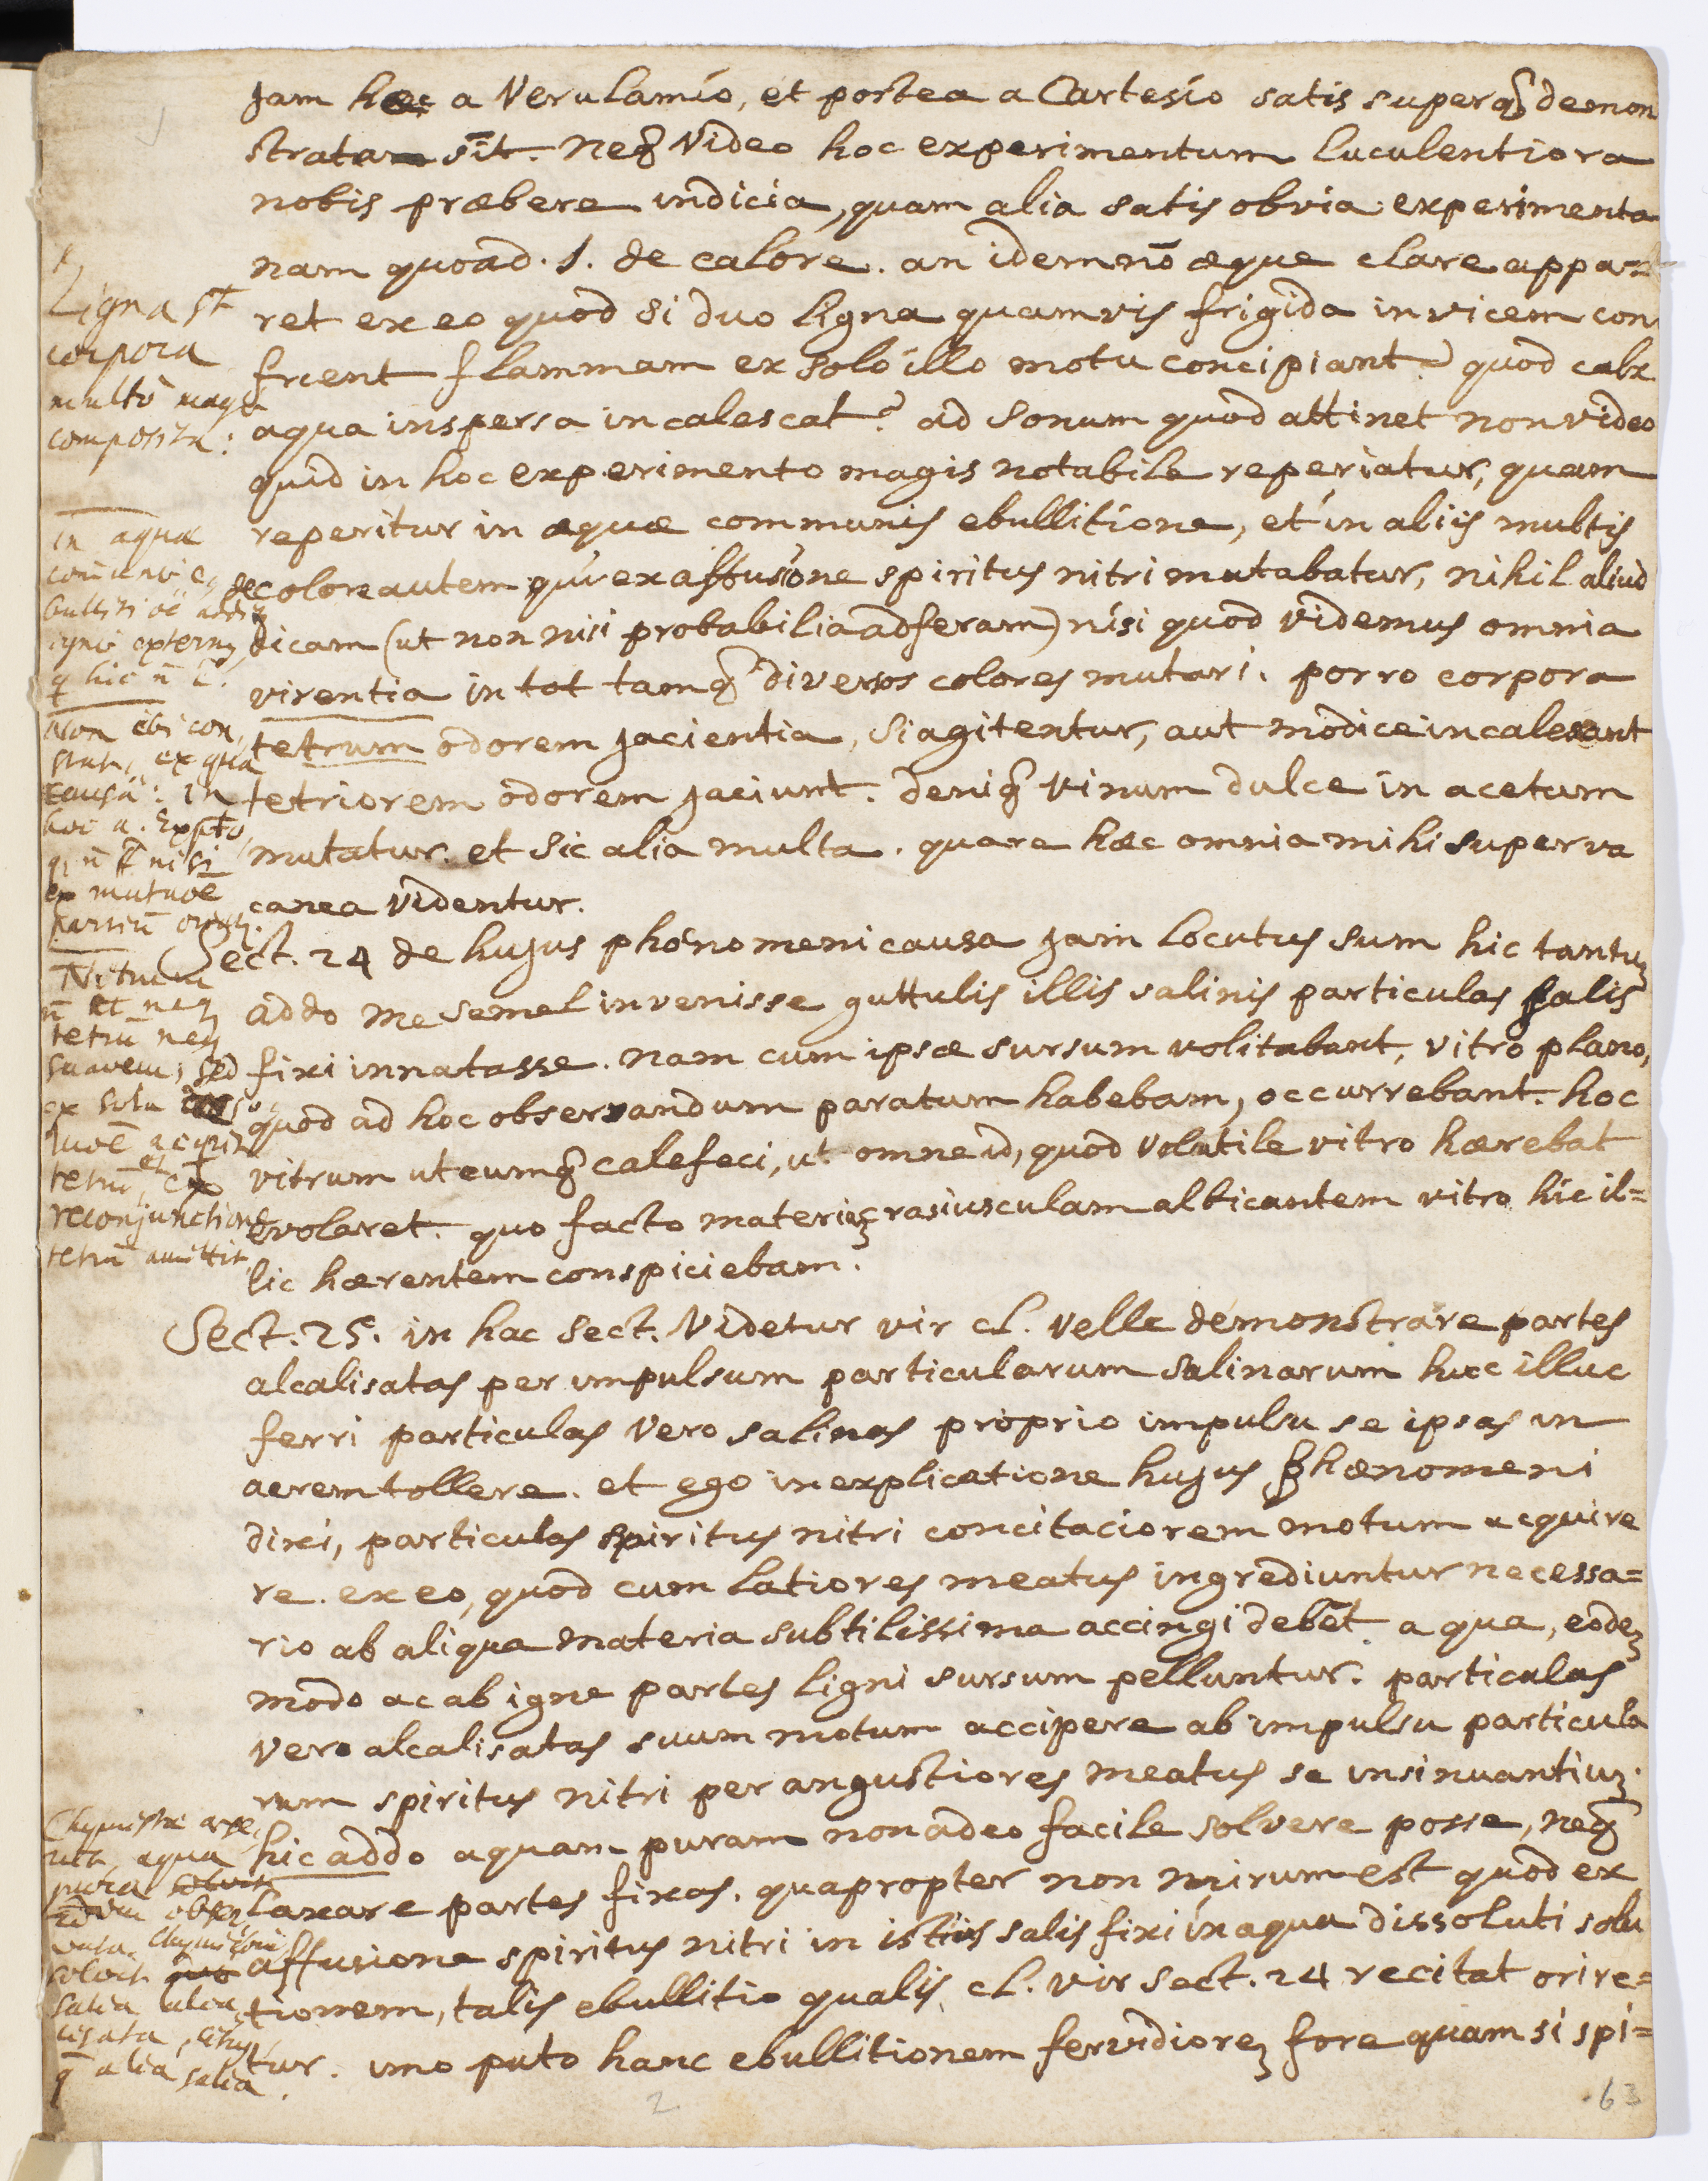 jam hæc a Verulamio, et postea a Cartesio satis superq̃ demon
strata sīt. Neq̃ Video hoc experimentum luculentiora
nobis præbere indicia, quam alia satis obvia experimenta
nam quoad .1. de calore. an idem nō æque clare appa=
ret ex eo quod si duo ligna quamvis frigida invicem con
frient flammam ex solo illo motu concipiant? quod calx
aqua inspersa incalescat? ad sonum quod attinet non video
quid in hoc experimento magis notabile reperiatur, quam
reperitur in aquæ communis ebullitione, et in aliis multis
de colore autem qui ex affusione spiritus nitri mutabatur, nihil aliud
dicam (ut non nisi probabilia adferam) nisi quod videmus omnia
virentia in tot tamq̃ diversos colores mutari. porro corpora
tetrum odorem jacientia, si agitentur, aut modice incalescant
tetriorem odorem jaciunt. deniq̃ vinum dulce in acetum
mutatur. et sic alia multa. quare hæc omnia mihi superva
canea videntur.
Sect. 24 de hujus phœnomeni causa jam locutus sum hic tantuʒ
addo me semel invenisse guttulis illis salinis particulas salis
fixi innatasse. nam cum ipsæ sursum volitabant, vitro plano,
quod ad hoc observandum paratum habebam, occurrebant. hoc
vitrum utcumq̃ calefeci, ut omne id, quod volatile vitro hærebat
evolaret. quo facto materiaʒ crasiusculam albicantem vitro hic il=
lic hærentem conspiciebam.
Sect. 25. in hac sect. Videtur vir cl. velle demonstrare partes
alcalisatas per impulsum particularum salinarum huc illuc
ferri particulas vero salinas proprio impulsu se ipsas in
aerem tollere. et ego in explicatione hujus phænomeni
dixi, particulas spiritus nitri concitaciorem motum acquire
re. ex eo, quod cum latiores meatus ingrediuntur necessa=
rio ab aliqua materia subtilissima accingi debēt. a qua, eodeʒ
modo ac ab igne partes ligni sursum pelluntur. particulas
vero alcalisatas suum motum accipere ab impulsu particula
rum spiritus nitri per angustiores meatus se insinuantiuʒ.
hic addo aquam puram non adeo facile solvere posse, neq̃
laxare partes fixas. quapropter non mirum est quod ex
affusione spiritus nitri in istius salis fixi in aqua dissoluti solu
tionem, talis ebullitio qualis cl. vir sect. 24 recitat orire=
tur. imo puto hanc ebullitionem fervidioreʒ fore quam si spi=
Ligna st
corpora
multò magis
composita:
in aqua
bullitiōe
igni externo
q̃ hic ñ ē.
Non ibi con
stat, ex qua
causâ: in
nisi
ex mutuâ
partiū
Nitrum
ñ neq
tetrū neq
suavem; sed
ex sola
tetrū, et
reconjunctione
tetrū amittit.
aqua
pura
salia
q̃ alia salia.
2
63